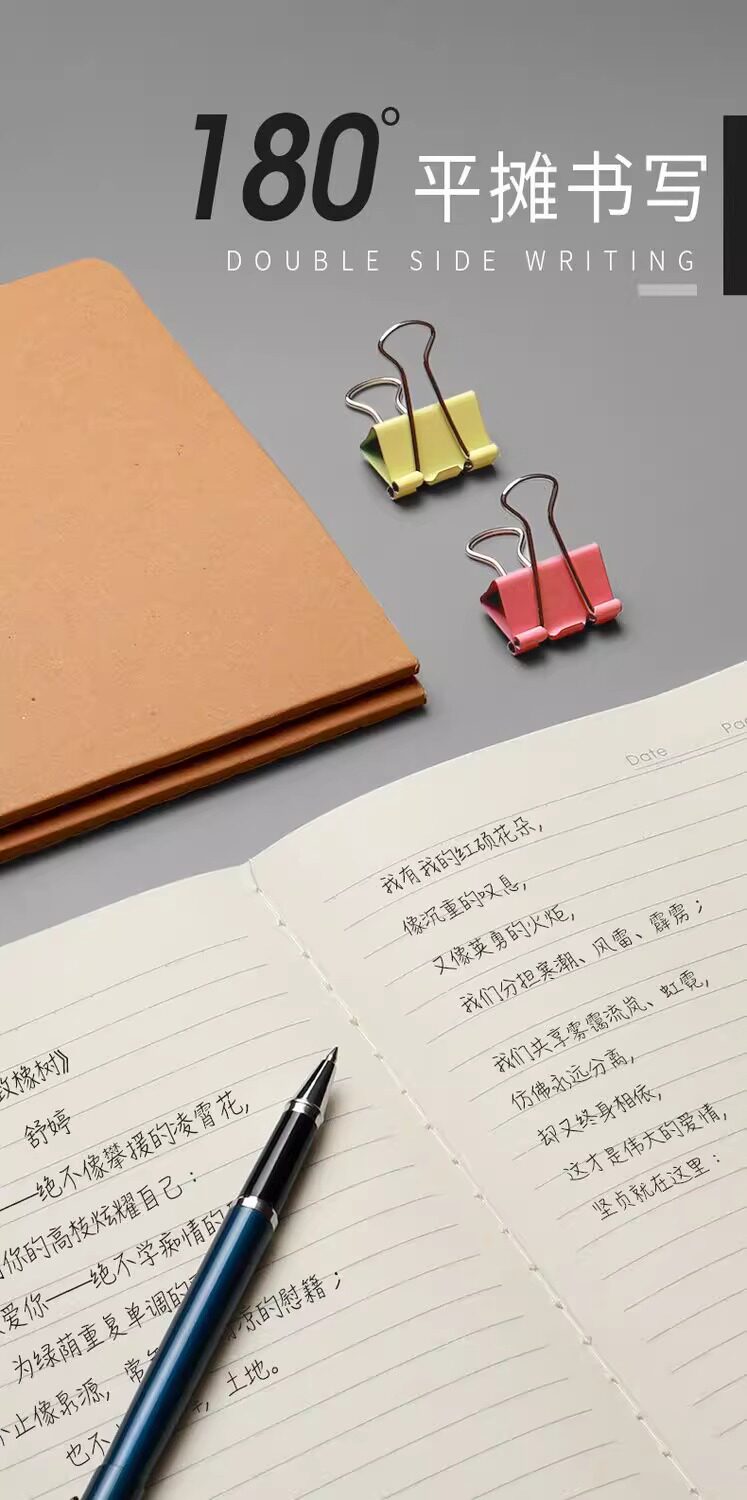 180° 平摊书写
DOUBLE SIDE WRITING
Date
致橡树》
舒婷
——绝不像攀援的凌霄花,
你的高枝炫耀自己:
爱你——绝不学痴情的
为绿荫重复单调的
止像泉源, 常 凉的慰籍;
也不 土地。
我有我的红硕花朵,
像沉重的叹息,
又像英勇的火炬,
我们分担寒潮、风雷、霹雳;
我们共享雾霭流岚、虹霓,
仿佛永远分离,
却又终身相依,
这才是伟大的爱情,
坚贞就在这里: